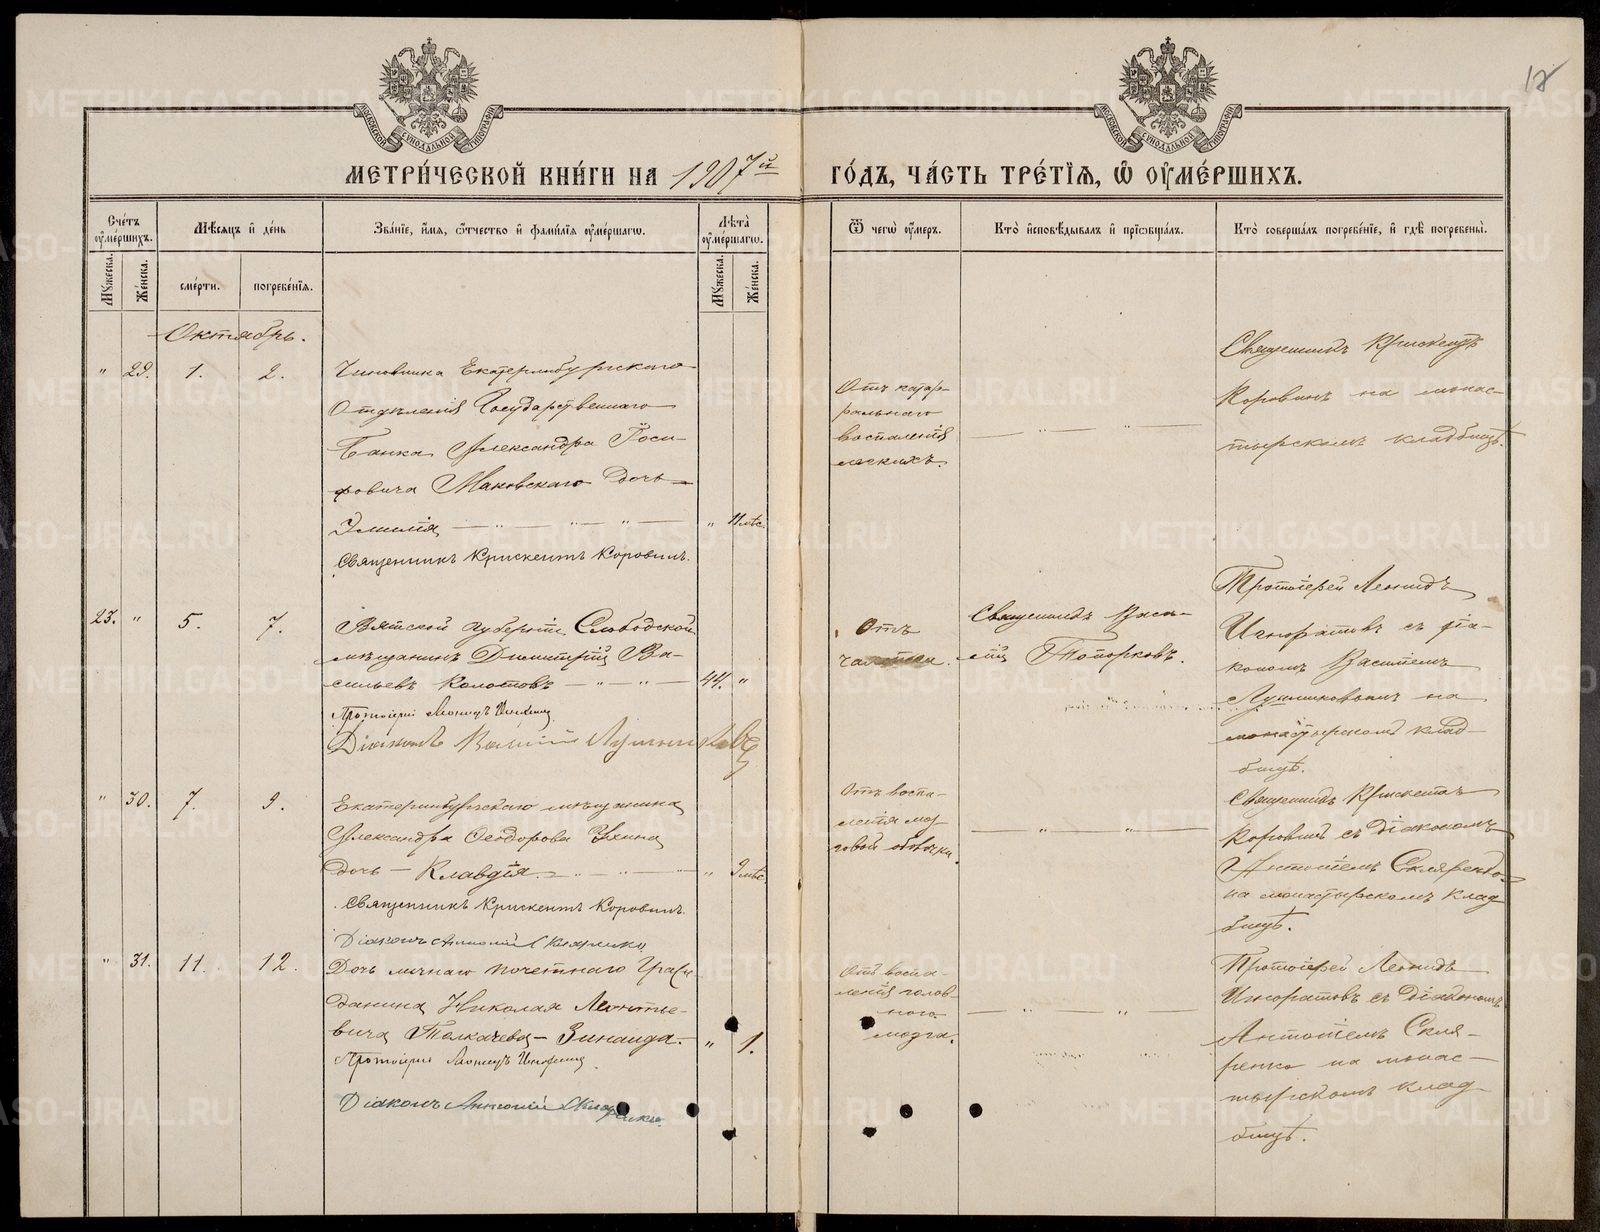 12
МОСКОВСКОЙ СУНОДАЛЬНОЙ ТИПОГРАФІИ
МОСКОВСКОЙ СУНОДАЛЬНОЙ ТИПОГРАФІИ
МЕТРИ́ЧЕСКОЙ КНИ́ГИ НА 1907й ГО́ДЪ, ЧА́СТЬ ТРЕ́ТІѦ, Ѿ ОУМЕ́РШИХЪ.
Сче́тъ оуме́ршихъ.
Мꙋжеска.
Же́нска.
Мѣ́сѧцъ и҆ де́нь
сме́рти.
погребе́нїѧ.
Зва́нїе, и҆́мѧ, ѻ҆́тчество и҆ фами́лїѧ оуме́ршагѡ.
Лѣ́та оуме́ршагѡ.
Мꙋжеска.
Же́нска.
Ѿ чегѡ̀ оу́меръ.
Кто̀ и҆сповѣ́дывалъ и҆ прїѡбща́лъ.
Кто̀ соверша́лъ погребе́нїе, и҆ гдѣ̀ погребены̀.
Октябрь.
" 29. 1. 2.
Чиновника Екатеринбургскаго
Отдѣленія Государственнаго
Банка Александра Іоси-
фовича Маковскаго дочь
Эмилія — " — " — " —
" 11 мѣс.
Священникъ Крискентъ Коровинъ.
Отъ катар-
ральнаго
воспаленія
легкихъ.
— " " —
Священникъ Крискентъ
Коровинъ на монас-
тырскомъ кладбищѣ.
23. " 5. 7.
Вятской губерніи Слободской
мѣщанинъ Димитрій Ва-
сильевъ Колотовъ — " — " —
44. "
Протоіерей Леонидъ Игноратовъ
Діаконъ Василій Лушниковъ
Отъ
чахотки.
Священникъ Васи-
лій Топорковъ.
Протоіерей Леонидъ
Игноратовъ съ діа-
кономъ Василіемъ
Лушниковымъ на
монастырскомъ клад-
бищѣ.
" 30. 7. 9.
Екатеринбургскаго мѣщанина
Александра Ѳеодорова Ухина
дочь — Клавдія. — " — " —
" 9 мѣс.
Священникъ Крискентъ Коровинъ.
Діаконъ Антоній Скляренко
Отъ воспа-
ленія моз
говой оболочки.
— " " —
Священникъ Крискентъ
Коровинъ съ діакономъ
Антоніемъ Скляренко
на монастырскомъ клад
бищѣ.
" 31. 11. 12.
Дочь личнаго почетнаго граж
данина Николая Леонтье-
вича Толкачева — Зинаида. —
" 1.
Протоіерей Леонидъ Игноратовъ
Діаконъ Антоній Скляренко.
Отъ воспа-
ленія голов-
ного
мозга.
— " " —
Протоіерей Леонидъ
Игноратовъ съ діакономъ
Антоніемъ Скля-
ренко на монас-
тырскомъ клад
бищѣ.
METRIKI.GASO-URAL.RU